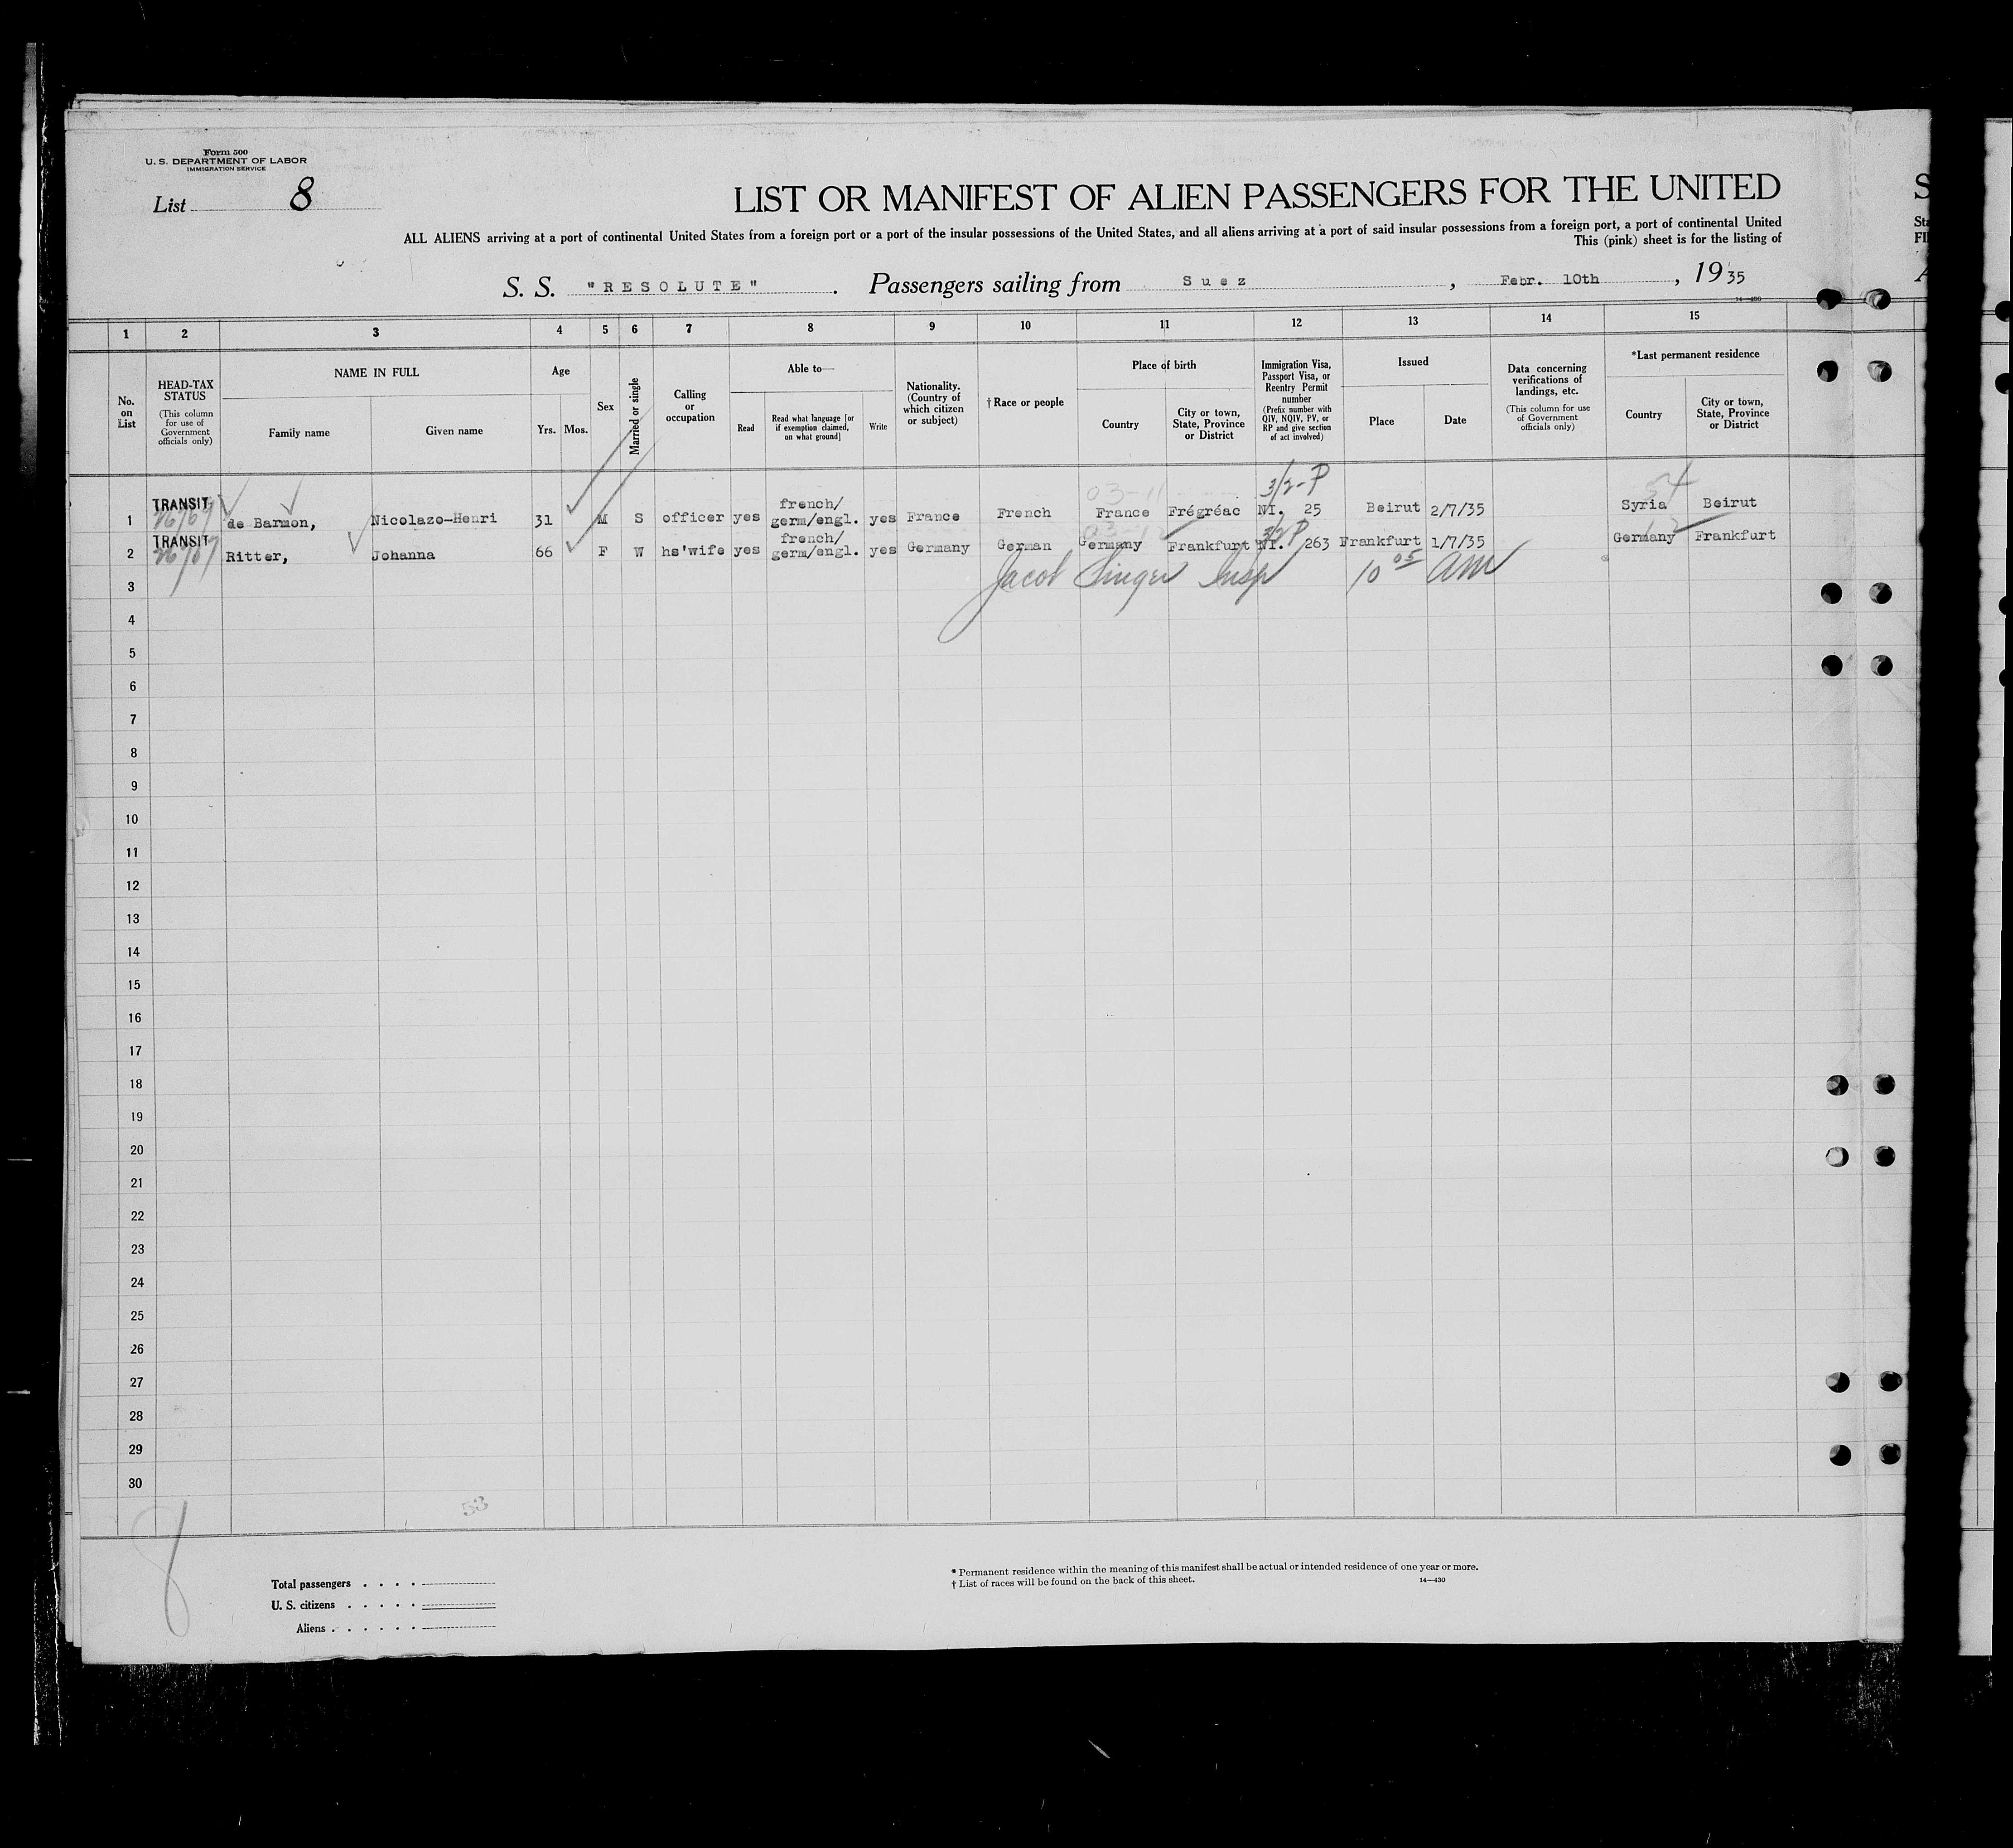 Form 500
U. S. DEPARTMENT OF LABOR
IMMIGRATION SERVICE
List 8
LIST OR MANIFEST OF ALIEN PASSENGERS FOR THE UNITED
ALL ALIENS arriving at a port of continental United States from a foreign port or a port of the insular possessions of the United States, and all aliens arriving at a port of said insular possessions from a foreign port, a port of continental United
This (pink) sheet is for the listing of
S. S. "RESOLUTE". Passengers sailing from Suez, Febr. 10th, 1935
14—430
1 2 3 4 5 6 7 8 9 10 11 12 13 14 15
No. on List
HEAD-TAX STATUS (This column for use of Government officials only)
NAME IN FULL
Family name
Given name
Age
Yrs. Mos.
Sex
Married or single
Calling or occupation
Able to—
Read
Read what language [or if exemption claimed, on what ground]
Write
Nationality. (Country of which citizen or subject)
†Race or people
Place of birth
Country
City or town, State, Province or District
Immigration Visa, Passport Visa, or Reentry Permit number (Prefix number with QIV, NQIV, PV, or RP and give section of act involved)
Issued
Place
Date
Data concerning verifications of landings, etc. (This column for use of Government officials only)
*Last permanent residence
Country
City or town, State, Province or District
3/2-P
03-11
54
1 TRANSIT de Barmon, Nicolazo-Henri 31 M S officer yes french/ germ/engl. yes France French France Frégréac NI. 25 Beirut 2/7/35 Syria Beirut
3/2 P
2 TRANSIT Ritter, Johanna 66 F W hs'wife yes french/ germ/engl. yes Germany German Germany Frankfurt NI. 263 Frankfurt 1/7/35 Germany Frankfurt
Jacob Singer Insp 10 05 am
3
4
5
6
7
8
9
10
11
12
13
14
15
16
17
18
19
20
21
22
23
24
25
26
27
28
29
30
53
8
Total passengers
U. S. citizens
Aliens
* Permanent residence within the meaning of this manifest shall be actual or intended residence of one year or more.
† List of races will be found on the back of this sheet.
14—430